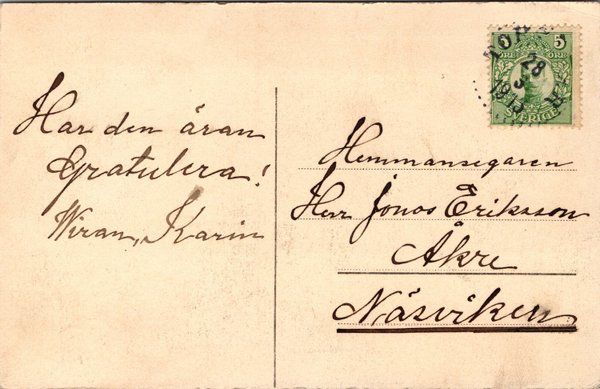 Har den äran
Gratulera!
Wiran, Karin
5
ÖRE ÖRE
SVERIGE
28
3
Hemmansegaren
Herr Jonas Eriksson
Åkre
Näsviken